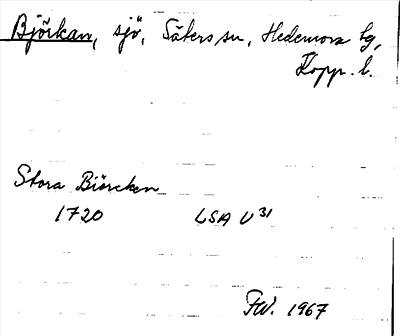 Björkan, sjö, Säters sn, Hedemora tg,
Kopp. l.
Stora Biörcken
1720 LSA U 31
FW. 1967